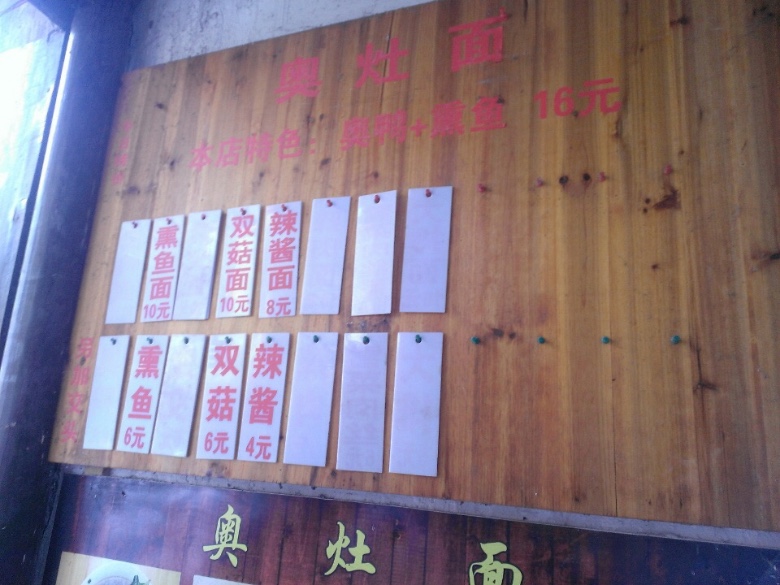 奥灶面
本店特色：奥鸭+熏鱼 16元
熏鱼面 10元
双菇面 10元
辣酱面 8元
熏鱼 6元
双菇 6元
辣酱 4元
奥灶面